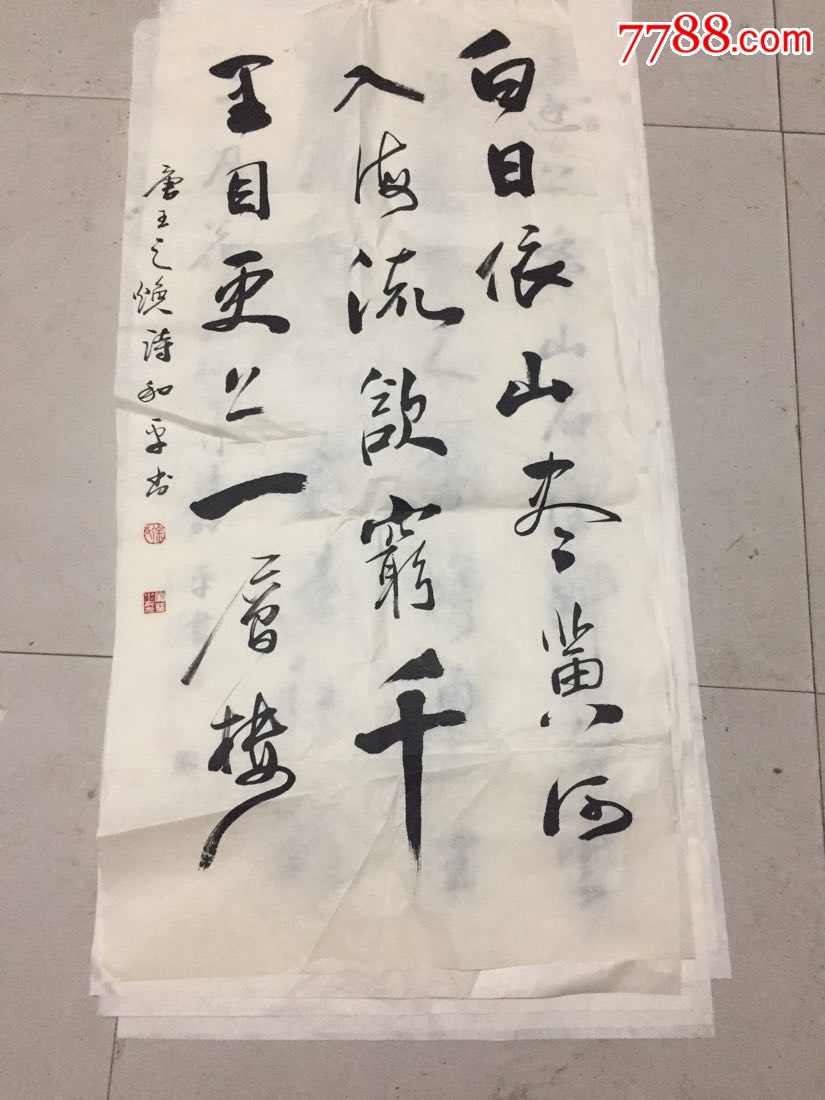 7788.com
白日依山尽黄河
入海流欲窮千
里目更上一層楼
唐王之焕詩和平书